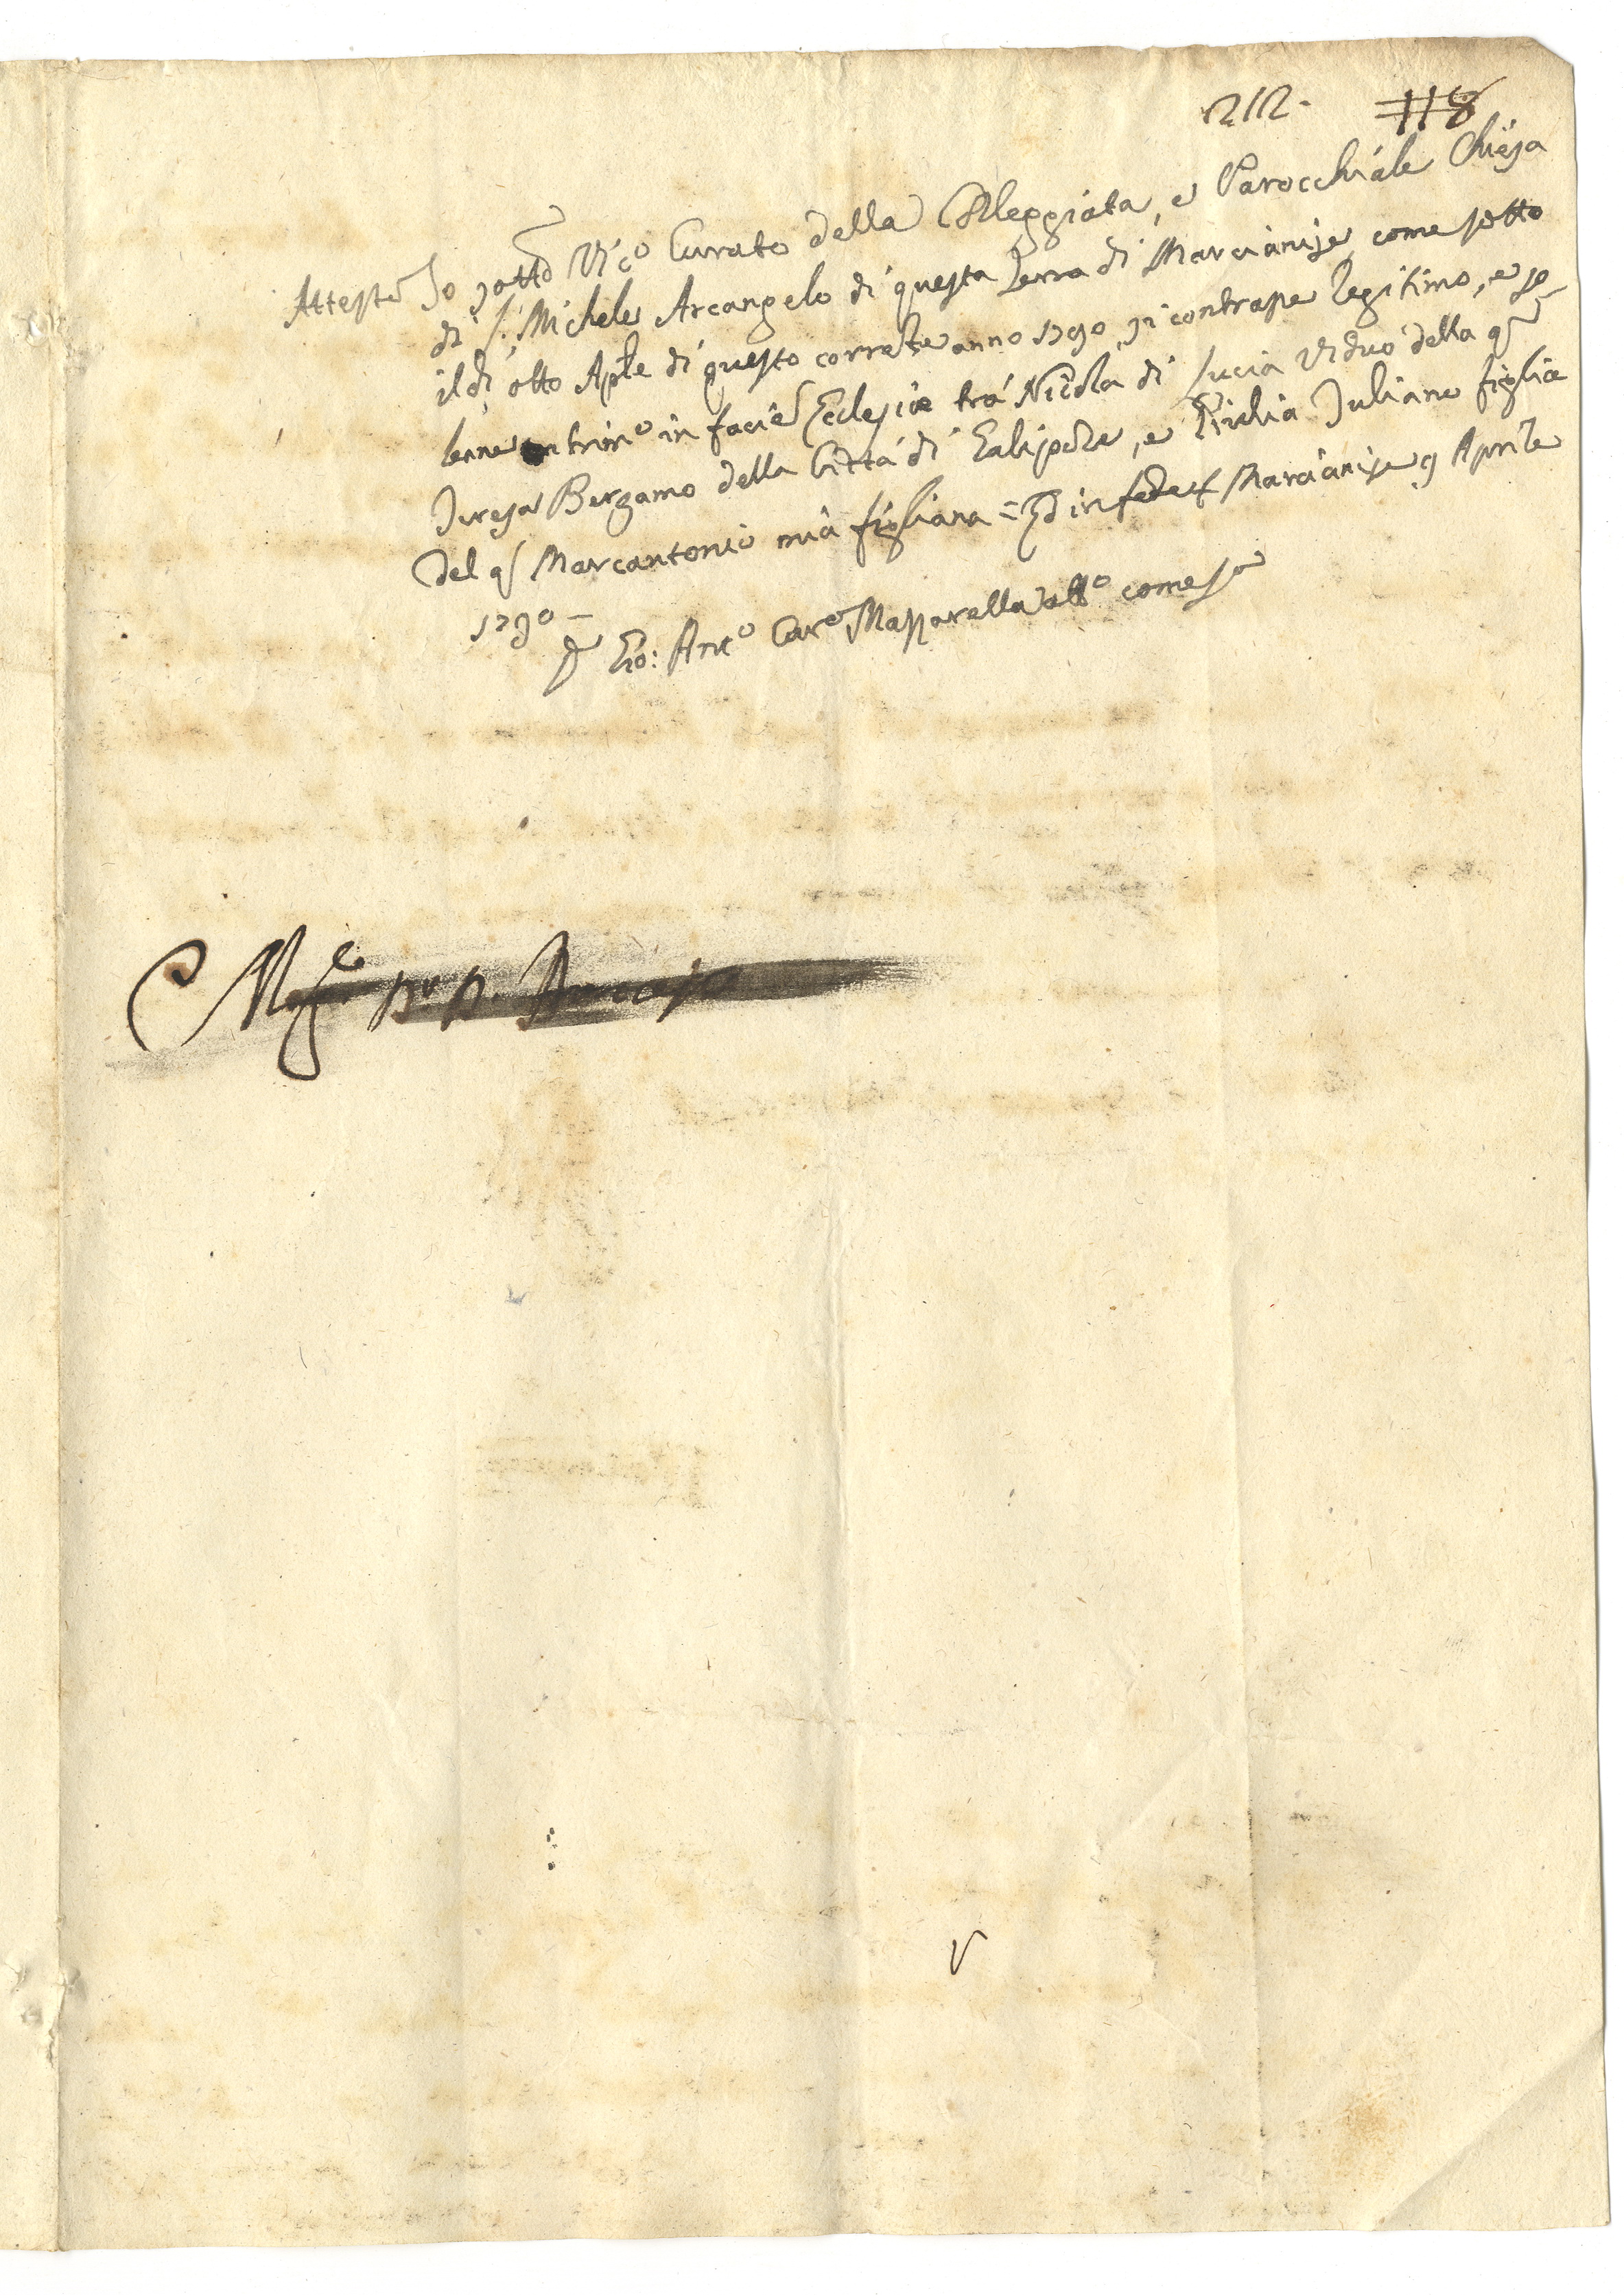 212. 118
Attesto Io sotto Vic.o Curato della Colleggiata, e Parocchiale Chiesa
di S. Michele Arcangelo di questa Terra di Marcianise, come sotto
il dì otto Aple di questo corrente anno 1790, si contrasse legitimo, e so-
lenne Matrim.o in facie Ecclesiæ trà Nicola di Lucia Viduo della qm
Teresa Bergamo della Città di Calipoli, e Giulia Iuliano figlia
del q Marcantonio mia figliana = Ed in fede Marcianise 9 Aprile
1790 –
Gio: Ant.o Cur.o Mazzarella att.o come sa